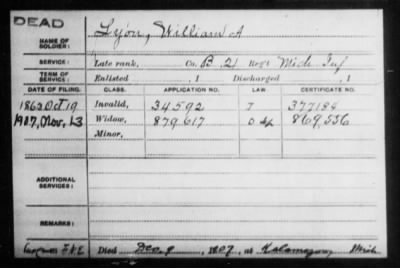 DEAD
NAME OF SOLDIER: Lyon, William A
SERVICE: Late rank, Co. B, 21 Reg't Mich Inf
TERM OF SERVICE: Enlisted , 1 Discharged , 1
DATE OF FILING. CLASS. APPLICATION NO. LAW. CERTIFICATE NO.
1863 Oct 19 Invalid, 34592 377184
1907, Nov. 13 Widow, 879617 869,556
Minor,
ADDITIONAL SERVICES:
REMARKS:
Died Dec. 9, 1907, at Kalamazoo, Mich